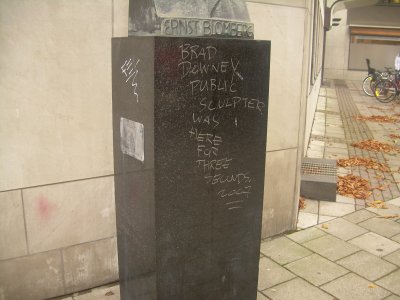 ERNST BLOMBERG
BRAD
DOWNEY
PUBLIC
SCULPTER
WAS
HERE
FOR
THREE
SECUNDS
2007